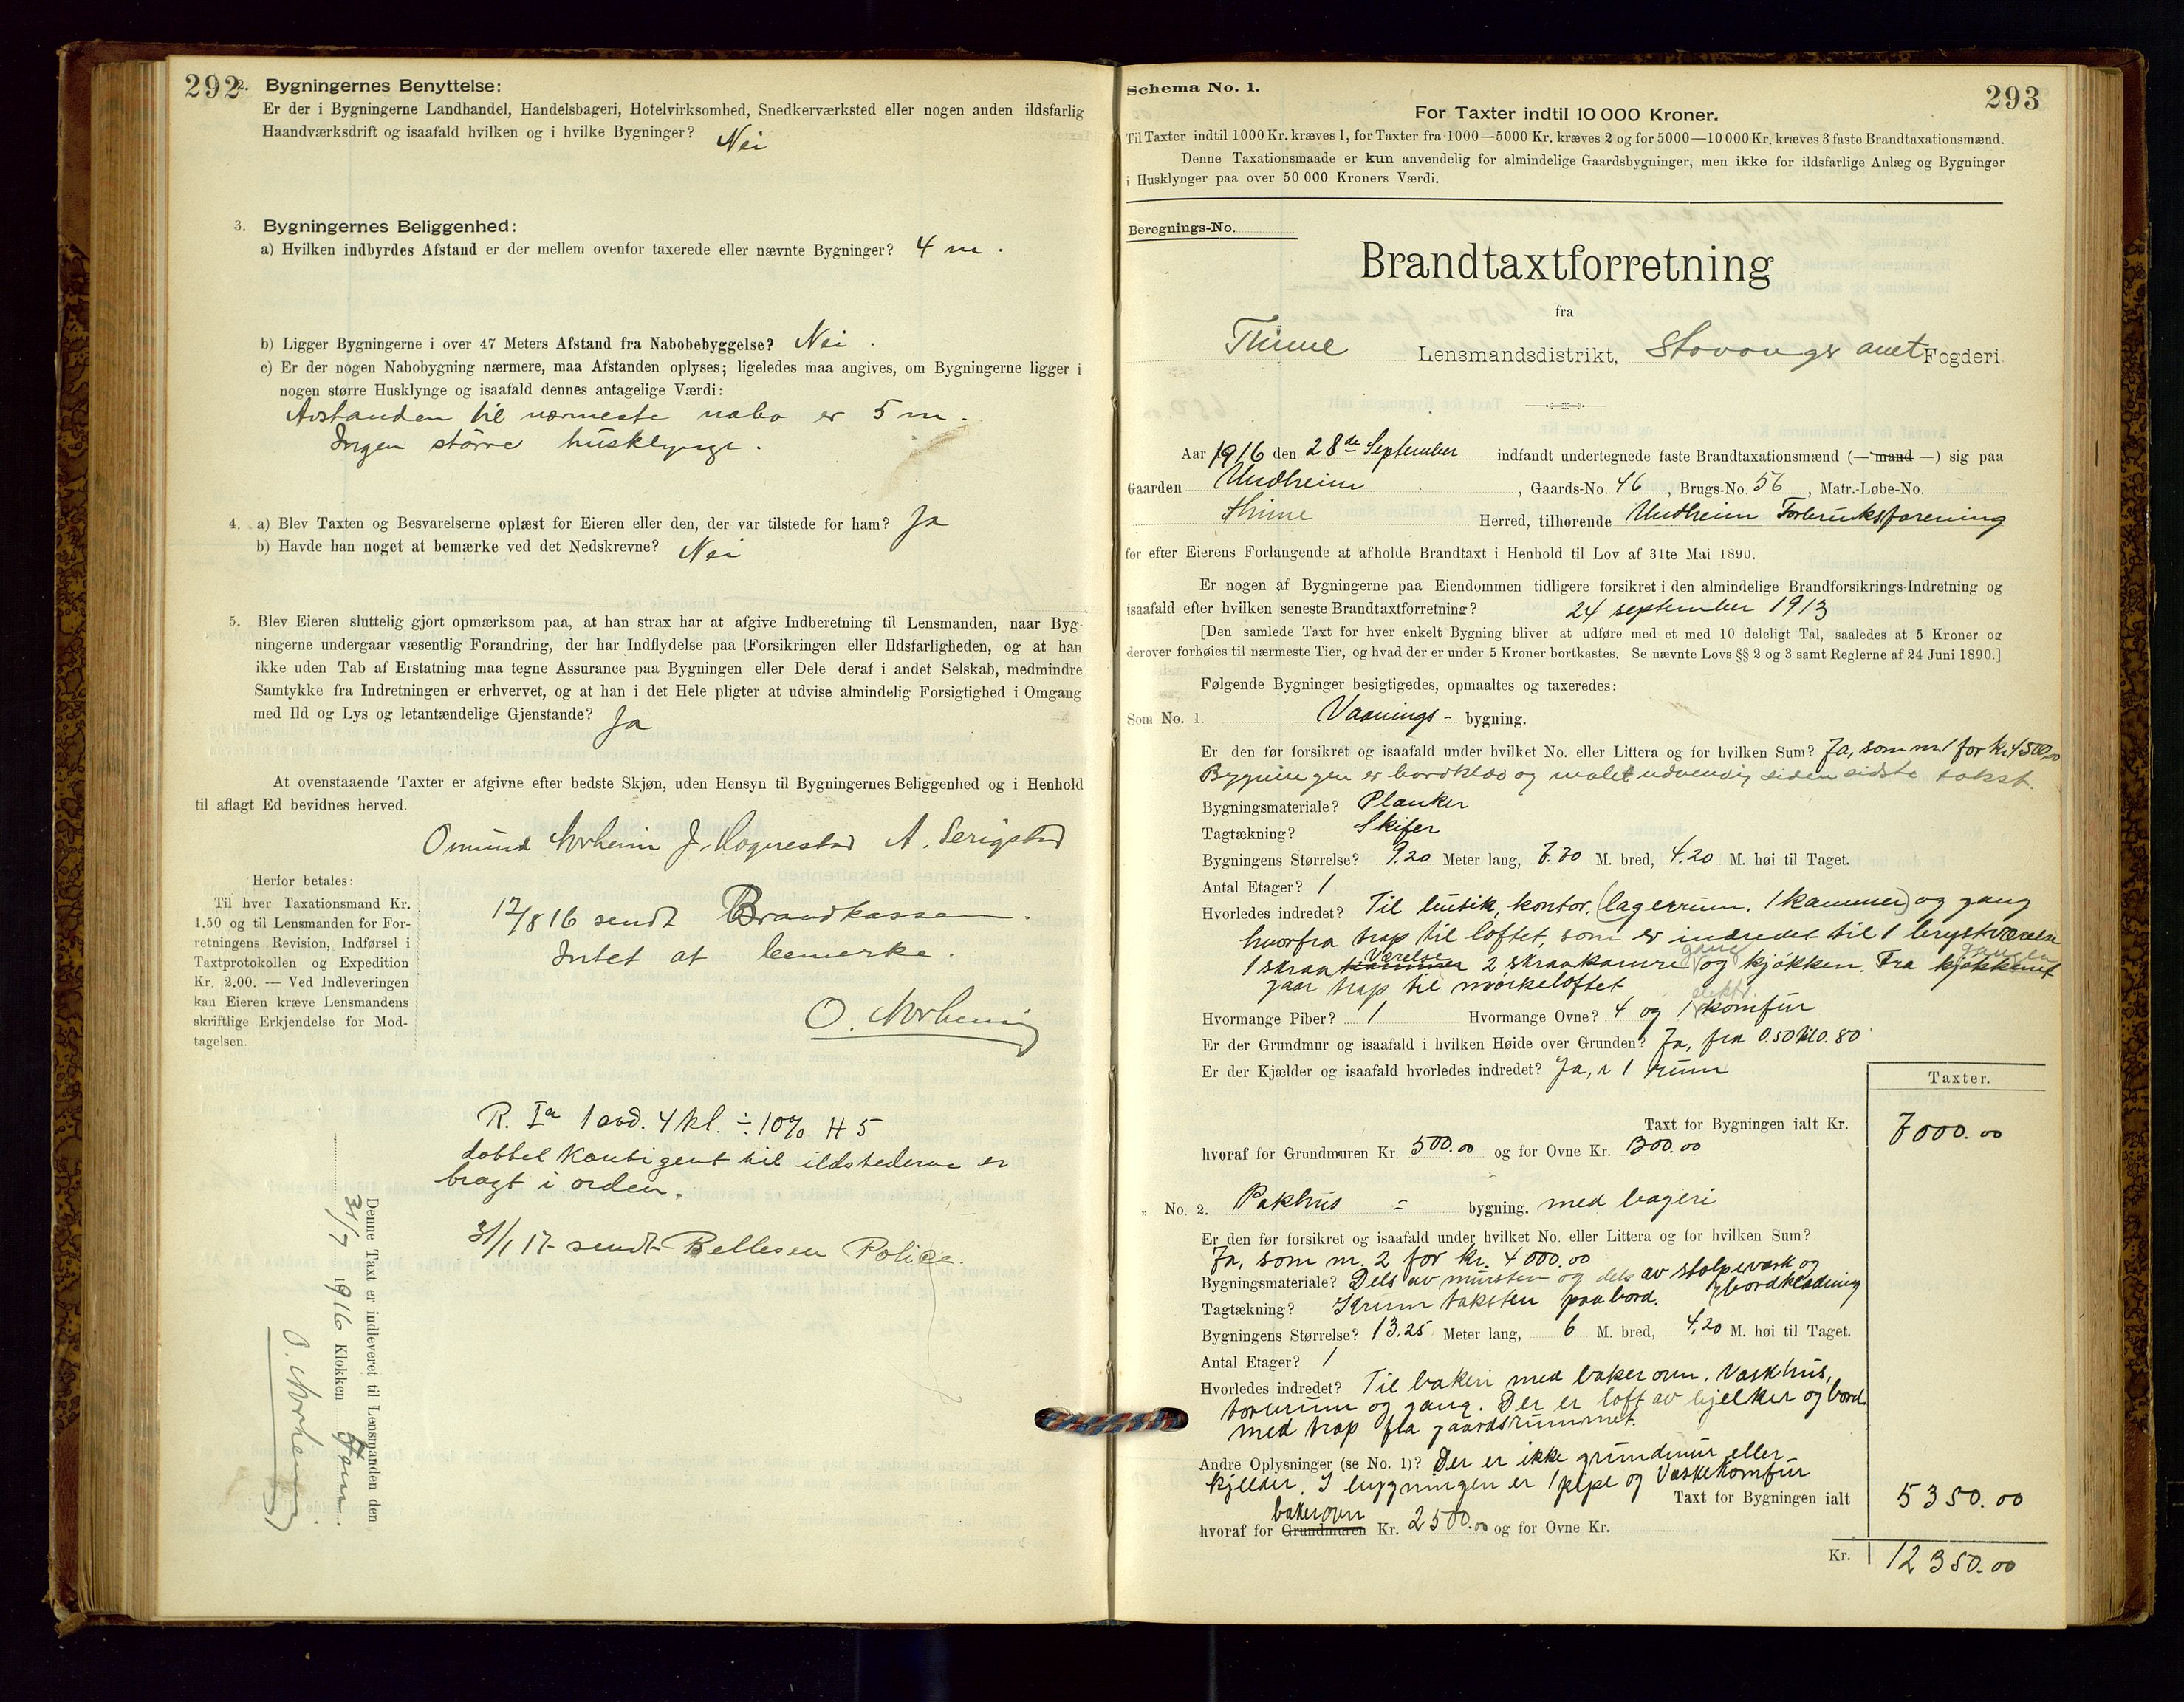 292
2. Bygningernes Benyttelse:
Er der i Bygningerne Landhandel, Handelsbageri, Hotelvirksomhed, Snedkerværksted eller nogen anden ildsfarlig
Haandværksdrift og isaafald hvilken og i hvilke Bygninger? Nei
3. Bygningernes Beliggenhed:
a) Hvilken indbyrdes Afstand er der mellem ovenfor taxerede eller nævnte Bygninger? 4 m.
b) Ligger Bygningerne i over 47 Meters Afstand fra Nabobebyggelse? Nei.
c) Er der nogen Nabobygning nærmere, maa Afstanden oplyses; ligeledes maa angives, om Bygningerne ligger i
nogen større Husklynge og isaafald dennes antagelige Værdi:
Avstanden til nærmeste nabo er 5 m.
Ingen större husklynge.
4. a) Blev Taxten og Besvarelserne oplæst for Eieren eller den, der var tilstede for ham? Ja
b) Havde han noget at bemærke ved det Nedskrevne? Nei
5. Blev Eieren sluttelig gjort opmærksom paa, at han strax har at afgive Indberetning til Lensmanden, naar Byg-
ningerne undergaar væsentlig Forandring, der har Indflydelse paa Forsikringen eller Ildsfarligheden, og at han
ikke uden Tab af Erstatning maa tegne Assurance paa Bygningen eller Dele deraf i andet Selskab, medmindre
Samtykke fra Indretningen er erhvervet, og at han i det Hele pligter at udvise almindelig Forsigtighed i Omgang
med Ild og Lys og letantændelige Gjenstande? Ja
At ovenstaaende Taxter er afgivne efter bedste Skjøn, uden Hensyn til Bygningernes Beliggenhed og i Henhold
til aflagt Ed bevidnes herved.
Omund Norheim J. Hognestad A. Serigstad
Herfor betales:
Til hver Taxationsmand Kr.
1.50 og til Lensmanden for For-
retningens Revision, Indførsel i
Taxtprotokollen og Expedition
Kr. 2.00. — Ved Indleveringen
kan Eieren kræve Lensmandens
skriftlige Erkjendelse for Mod-
tagelsen.
12/8 16 sendt Brandkassen.
Intet at bemerke.
O. Norheim
R. Iª 1 avd. 4 kl. ÷ 10% H 5
dobbel kontigent til ildstederne er
bragt i orden.
31/1 17 sendt Bellesen Police.
Denne Taxt er indleveret til Lensmanden den
31/7 1916 Klokken
O. Norheim
293
Schema No. 1.
For Taxter indtil 10 000 Kroner.
Til Taxter indtil 1000 Kr. kræves 1, for Taxter fra 1000—5000 Kr. kræves 2 og for 5000—10 000 Kr. kræves 3 faste Brandtaxationsmænd.
Denne Taxationsmaade er kun anvendelig for almindelige Gaardsbygninger, men ikke for ildsfarlige Anlæg og Bygninger
i Husklynger paa over 50 000 Kroners Værdi.
Beregnings-No.
Brandtaxtforretning
fra
Thime Lensmandsdistrikt, Stavanger amt Fogderi
Aar 1916 den 28de September indfandt undertegnede faste Brandtaxationsmænd (— mand —) sig paa
Gaarden Undheim, Gaards-No. 46, Brugs-No. 56, Matr.-Løbe-No.
Thime Herred, tilhørende Undheim Forbruksforening
for efter Eierens Forlangende at afholde Brandtaxt i Henhold til Lov af 31te Mai 1890.
Er nogen af Bygningerne paa Eiendommen tidligere forsikret i den almindelige Brandforsikrings-Indretning og
isaafald efter hvilken seneste Brandtaxtforretning? 24 september 1913
[Den samlede Taxt for hver enkelt Bygning bliver at udføre med et med 10 deleligt Tal, saaledes at 5 Kroner og
derover forhøies til nærmeste Tier, og hvad der er under 5 Kroner bortkastes. Se nævnte Lovs §§ 2 og 3 samt Reglerne af 24 Juni 1890.]
Følgende Bygninger besigtigedes, opmaaltes og taxeredes:
Som No. 1. Vaanings- bygning.
Er den før forsikret og isaafald under hvilket No. eller Littera og for hvilken Sum? Ja, som nr 1 for kr. 4500,00
Bygningen er bordklæd og malet udvendig siden sidste takst.
Bygningsmateriale? Planker
Tagtækning? Skifer
Bygningens Størrelse? 9.20 Meter lang, 7.70 M. bred, 4.20 M. høi til Taget.
Antal Etager? 1
Hvorledes indredet? Til butik, kontor, (lagerrum, 1 kammer) og gang
hvorfra trap til loftet, som er indredet til 1 brystværelse
1 skraa kammer Værelse 2 skraakamre gang og kjøkken. Fra kjøkkenet gangen
gaar trap til mörkeloftet
Hvormange Piber? 1 Hvormange Ovne? 4 og 1 elektr. komfür
Er der Grundmur og isaafald i hvilken Høide over Grunden? Ja, fra 0.50 til 0.80
Er der Kjælder og isaafald hvorledes indredet? Ja, i 1 rum
Taxter.
Taxt for Bygningen ialt Kr. 7000.00
hvoraf for Grundmuren Kr. 500.00 og for Ovne Kr. 300.00
„ No. 2. Pakhus = bygning. med bageri
Er den før forsikret og isaafald under hvilket No. eller Littera og for hvilken Sum?
Ja, som nr. 2 for kr. 4000.00
Bygningsmateriale? Dels av mursten og dels av stolpeverk og bordklædning
Tagtækning? Krum taksten paa bord.
Bygningens Størrelse? 13.25 Meter lang, 6 M. bred, 4,20 M. høi til Taget.
Antal Etager? 1
Hvorledes indredet? Til bakeri med bakerovn, Vaskhus,
torvrum og gang. Der er loft av bjelker og bord
med trap fra gaardsrummet.
Andre Oplysninger (se No. 1)? Der er ikke grundmur eller
kjelder. I bygningen er 1 pipe og Vaskekomfür
Taxt for Bygningen ialt 5350.00
bakerovn
hvoraf for Grundmuren Kr. 2500.00 og for Ovne Kr.
Kr. 12350.00